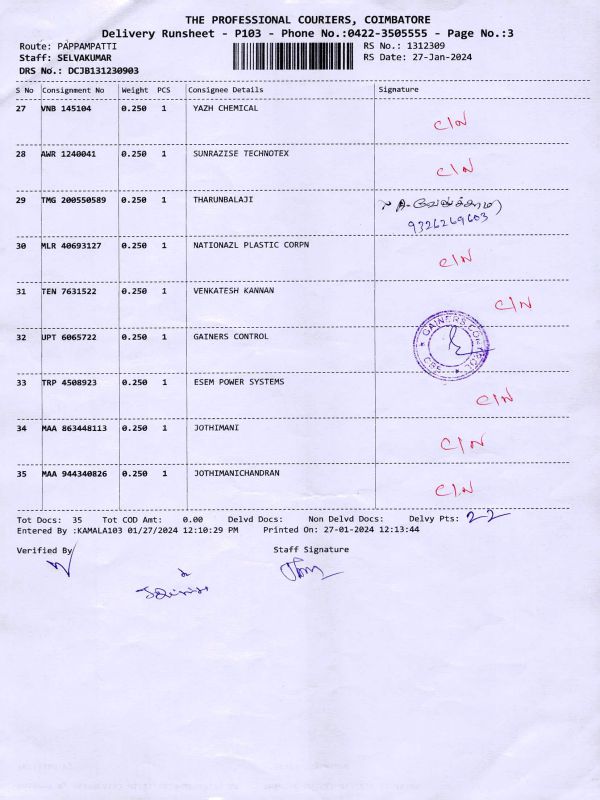 THE PROFESSIONAL COURIERS, COIMBATORE
Delivery Runsheet - P103 - Phone No.:0422-3505555 - Page No.:3
Route: PAPPAMPATTI RS No.: 1312309
Staff: SELVAKUMAR RS Date: 27-Jan-2024
DRS No.: DCJB131230903
S No Consignment No Weight PCS Consignee Details Signature
27 VNB 145104 0.250 1 YAZH CHEMICAL C/N
28 AWR 1240041 0.250 1 SUNRAZISE TECHNOTEX C/N
29 TMG 200550589 0.250 1 THARUNBALAJI
9326269603
30 MLR 40693127 0.250 1 NATIONAZL PLASTIC CORPN C/N
31 TEN 7631522 0.250 1 VENKATESH KANNAN C/N
32 UPT 6065722 0.250 1 GAINERS CONTROL
33 TRP 4508923 0.250 1 ESEM POWER SYSTEMS C/N
34 MAA 863448113 0.250 1 JOTHIMANI C/N
35 MAA 944340826 0.250 1 JOTHIMANICHANDRAN C/N
Tot Docs: 35 Tot COD Amt: 0.00 Delvd Docs: Non Delvd Docs: Delvy Pts: 22
Entered By :KAMALA103 01/27/2024 12:10:29 PM Printed On: 27-01-2024 12:13:44
Verified By Staff Signature